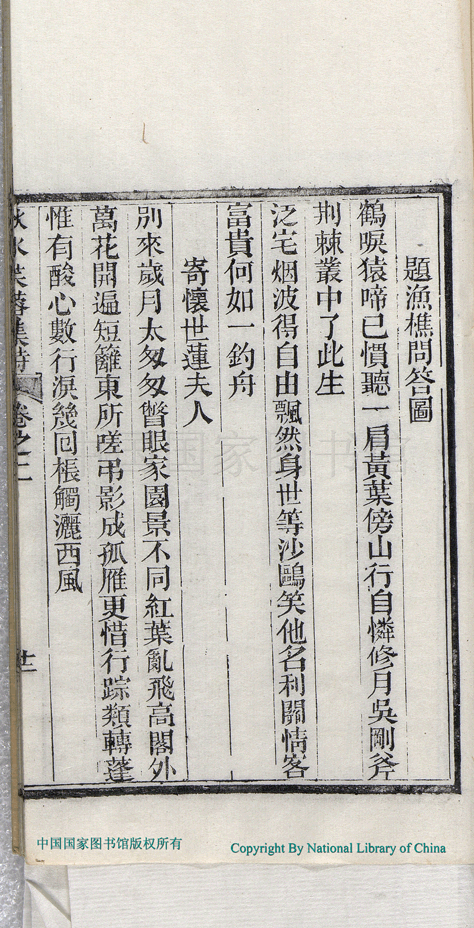 題漁樵問答圖
鶴唳猿啼已慣聽一肩黃葉傍山行自憐修月吳剛斧
荆棘叢中了此生
泛宅烟波得自由飄然身世等沙鷗笑他名利關情客
富貴何如一釣舟
寄懷世蓮夫人
別來歲月太匆匆瞥眼家園景不同紅葉亂飛高閣外
萬花開遍短籬東所嗟弔影成孤雁更惜行踪類轉蓬
惟有酸心數行淚幾回悵觸灑西風
水芙蓉集詩 卷之二 廿二
中国国家图书馆版权所有
Copyright By National Library of China